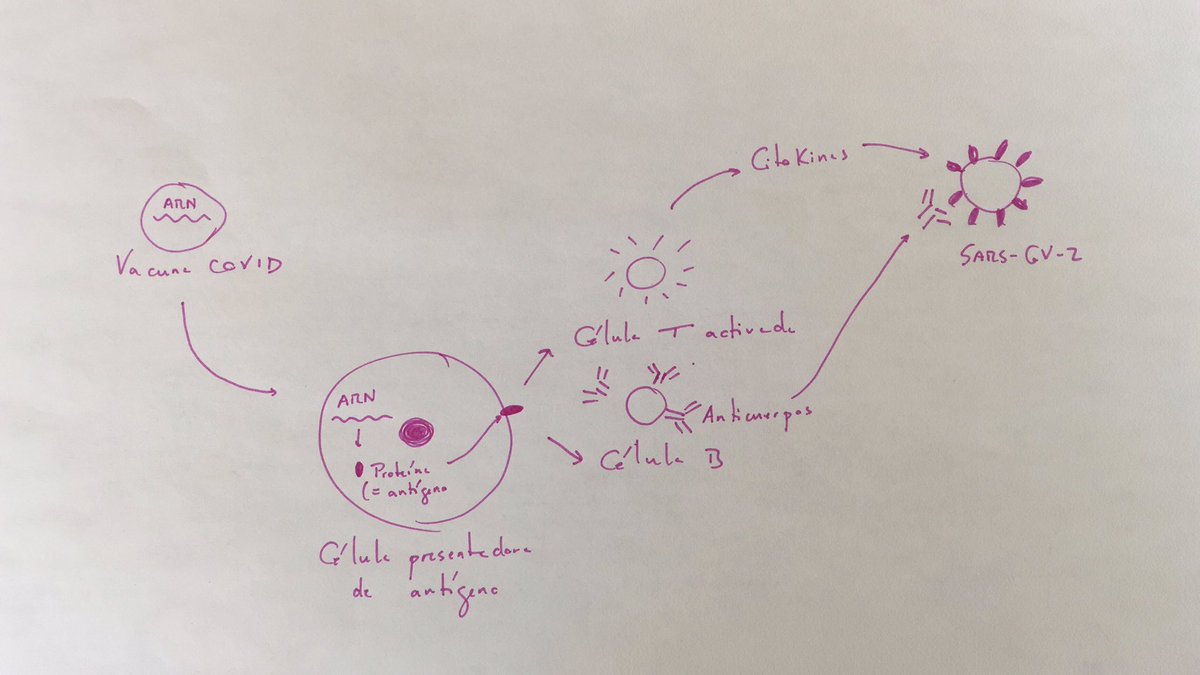 ARN
Vacuna COVID
ARN
Proteína
(= antígeno
Célula presentadora
de antígeno
Célula T activada
Citokines
Anticuerpos
Célula B
SARS-CoV-2